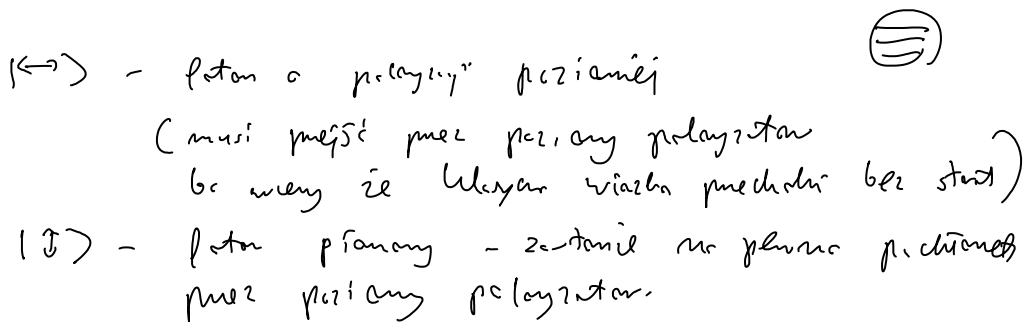 |↔⟩ – foton o polaryzacji poziomej
(musi przejść przez poziomy polaryzator
bo wiemy że klasyczna wiązka przechodzi bez strat)
|↕⟩ – foton pionowy – zostanie na pewno pochłonięty
przez poziomy polaryzator.